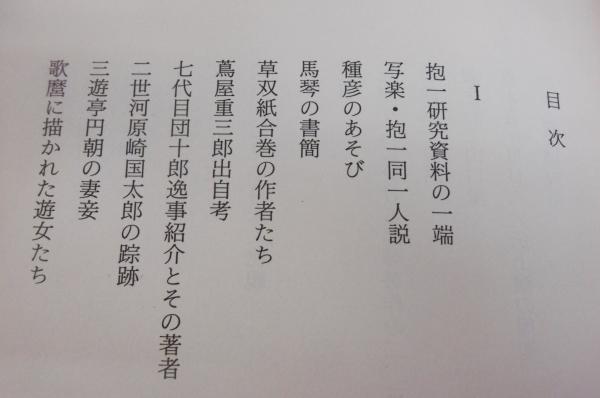 目次
I
抱一研究資料の一端
写楽・抱一同一人説
種彦のあそび
馬琴の書簡
草双紙合巻の作者たち
蔦屋重三郎出自考
七代目団十郎逸事紹介とその著者
二世河原崎国太郎の踪跡
三遊亭円朝の妻妾
歌麿に描かれた遊女たち